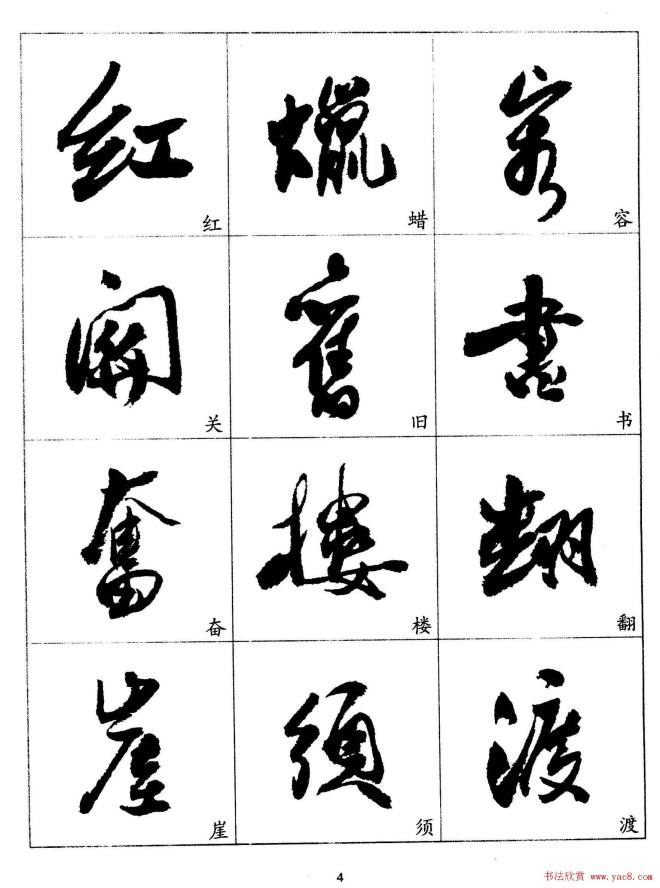 红 蜡 容
红 蜡 容
關 舊 書
关 旧 书
奮 楼 翻
奋 楼 翻
崖 須 渡
崖 须 渡
4
书法欣赏 www.yac8.com